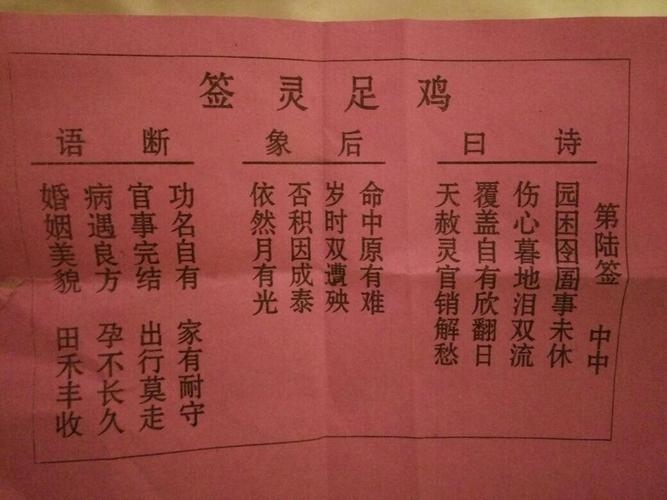 鸡足灵签
第陆签 中中
诗曰
园困囹圄事未休
伤心暮地泪双流
覆盖自有欣翻日
天赦灵官销解愁
后象
命中原有难
岁时双遭殃
否积因成泰
依然月有光
断语
功名自有 家有耐守
官事完结 出行莫走
病遇良方 孕不长久
婚姻美貌 田禾丰收